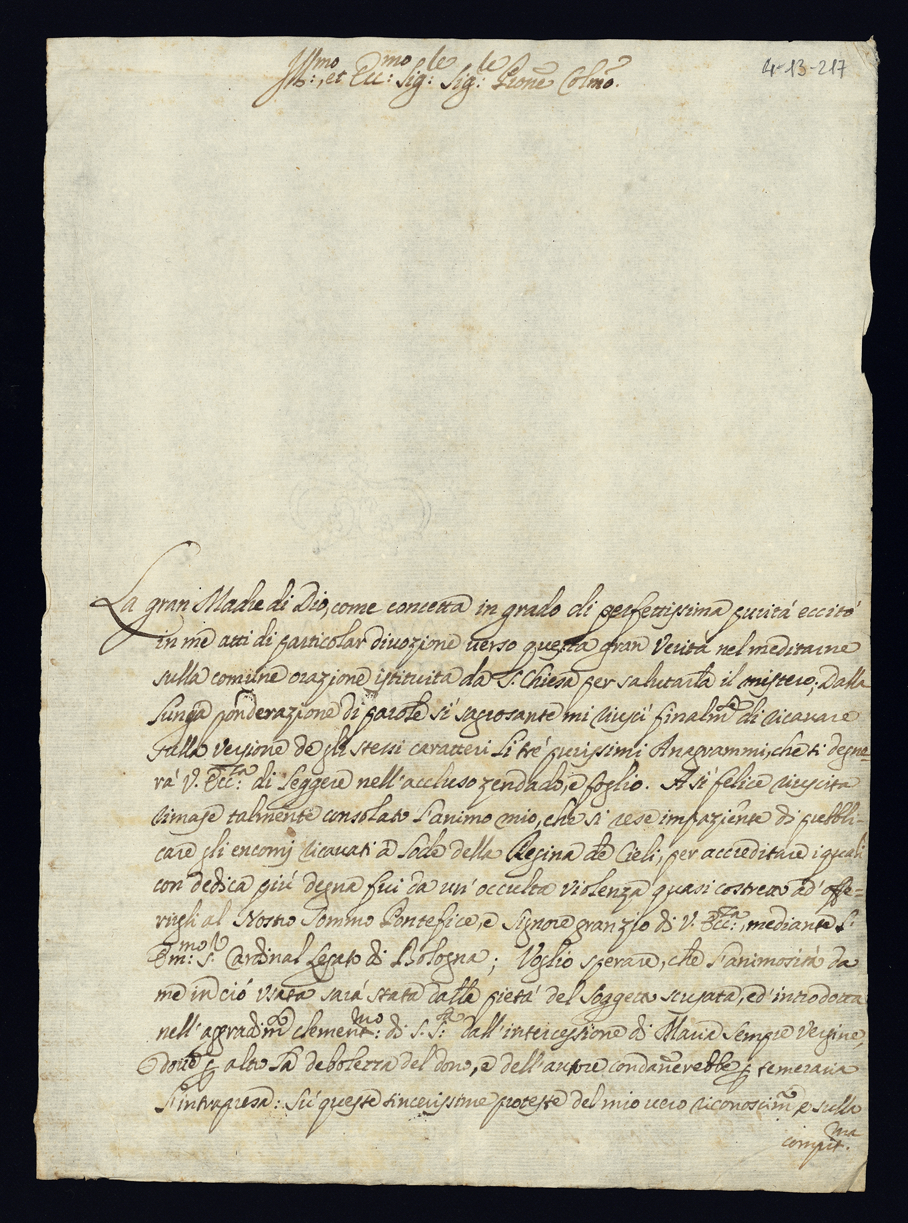 4-13-217
Ill:mo, et Ecc:mo Sig:re Sig:re Prone Colmo.
La gran Madre di Dio, come concetta in grado di perfettissima purità eccitò
in me atti di particolar divozione verso questa gran Verità nel meditarne
sulla comune orazione istituita da S. Chiesa per salutarla il mistero; Dalla
lunga ponderazione di parole sì sagrosante mi riuscì finalm.te di ricavare
sulla versione de gli stessi caratteri li trè purissimi Anagrammi, che si degne-
rà V. Ecc:za di leggere nell'accluso zendado, e foglio. A sì felice riuscita
rimase talmente consolato l'animo mio, che si rese impaziente di pubbli-
care gli encomj ricavati à lode della Regina de Cieli, per accreditare i quali
con dedica più degna fui da un'occulta violenza quasi costretto ad offe-
rirgli al Nostro Sommo Pontefice, e Signore granzio di V. Ecc:za, mediante l'
Em:mo S.r Cardinal Legato di Bologna; Voglio sperare, che l'animosità da
me in ciò usata sarà stata dalla pietà del Soggetto scusata, ed'introdotta
nell'aggradim.to clement:mo di S. S:tà dall'intercessione di Maria Sempre Vergine,
dove p altro la debolezza del dono, e dell'autore condannerebbe p temeraria
l'intrapresa: Sù queste sincerissime proteste del mio vero riconoscim.to e sulla
compit:ma